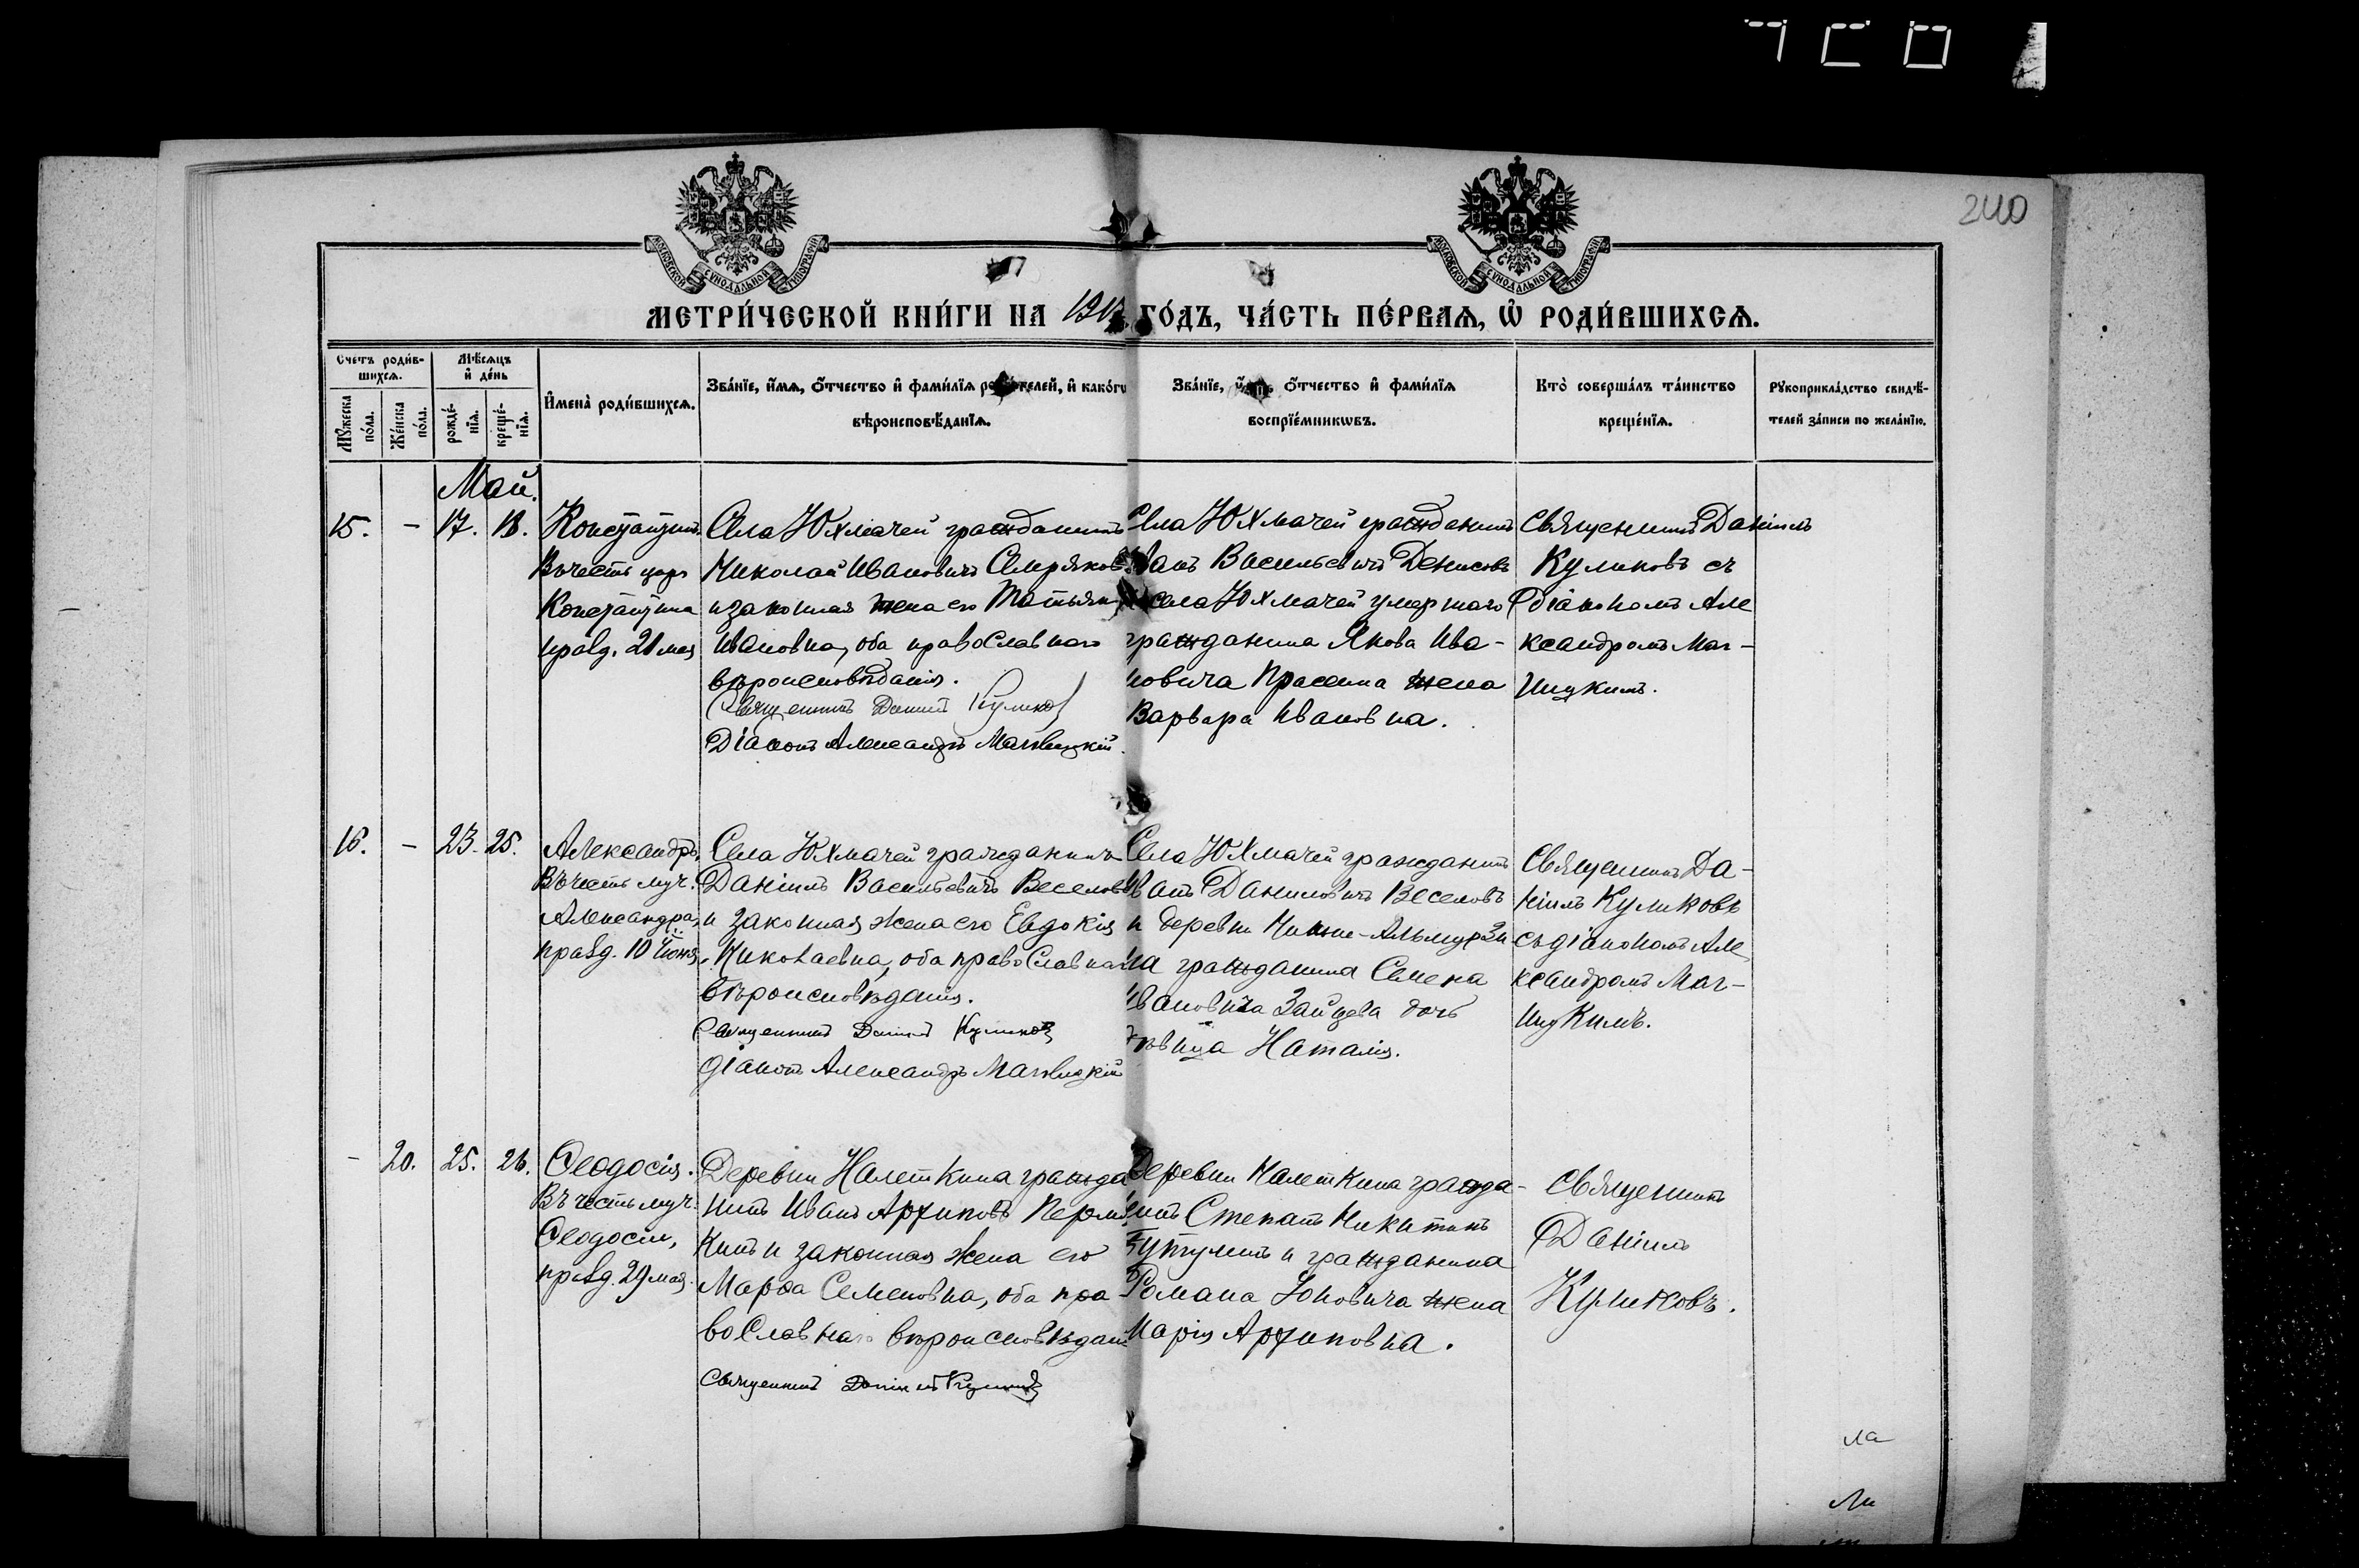 240
МОСКОВСКОЙ СУНОДАЛЬНОЙ ТИПОГРАФІИ
МОСКОВСКОЙ СУНОДАЛЬНОЙ ТИПОГРАФІИ
МЕТРИ́ЧЕСКОЙ КНИ́ГИ НА ГО́ДЪ, ЧА́СТЬ ПЕ́РВАЯ, Ѡ҆ РОДИ́ВШИХСЯ.
Счетъ роди́вшихся.
Мѣсяцъ и҆ де́нь
Мꙋ́жеска по́ла.
Же́нска по́ла.
рожде́нїя.
креще́нїя.
И҆мена̀ роди́вшихся.
Зва́нїе, и҆́мя, ѻ҆́тчество и҆ фами́лїя родителей, и҆ како́гѡ
вѣроисповѣ́данїя.
Зва́нїе, ѻ҆́тчество и҆ фами́лїя
воспрїе́мникѡвъ.
Кто̀ соверша́лъ та́инство
креще́нїя.
Рꙋкоприкла́дство свидѣ́-
телей за́писи по жела́нїю.
Май.
15. - 17. 18.
Константинъ.
Въ честь царя
Константина
празд. 21 мая
Села Юхмачей гражданинъ
Николай Ивановичъ Смеряковъ
и законная жена его Татьяна
Ивановна, оба православнаго
вѣроисповѣданія.
Священникъ Даніилъ Куликовъ
Діаконъ Александръ Магницкій.
Села Юхмачей гражданинъ
Иванъ Васильевичъ Денисовъ
и села Юхмачей умершаго
гражданина Якова Ива-
новича жена
Варвара Ивановна.
Священникъ Даніилъ
Куликовъ съ
діакономъ Але
ксандромъ Маг-
ницкимъ.
16. - 23. 25.
Александръ.
Въ честь муч.
Александра,
празд. 10 Іюня.
Села Юхмачей гражданинъ
Даніилъ Васильевичъ Веселовъ
и законная жена его Евдокія
Николаевна, оба православнаго
вѣроисповѣданія.
Священникъ Даніилъ Куликовъ
діаконъ Александръ Магницкій
Села Юхмачей гражданинъ
Иванъ Даниловичъ Веселовъ
и деревни Нижне-Альмурзи-
на гражданина Семена
Ивановича Зайцева дочь
дѣвица Наталія.
Священникъ Да-
ніилъ Куликовъ
съ діакономъ Але
ксандромъ Маг-
ницкимъ.
- 20. 25. 26.
Ѳеодосія.
Въ честь муч.
Ѳеодосіи,
празд. 29 мая.
Деревни Налеткина гражда
нинъ Иванъ Архиповъ Перми
кинъ и законная жена его
Марѳа Семеновна, оба пра-
вославнаго вѣроисповѣданія
Священникъ Даніилъ Куликовъ
Деревни Налеткина гражда-
нинъ Степанъ Никитинъ
и гражданина
Романа Іоновича жена
Марія Архиповна.
Священникъ
Даніилъ
Куликовъ.
ла
Ли